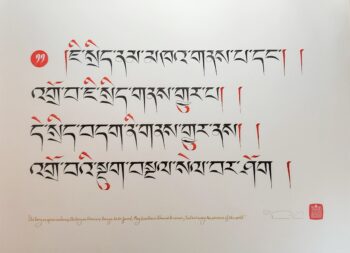 །ཇི་སྲིད་ནམ་མཁའ་གནས་པ་དང་། །
འགྲོ་བ་ཇི་སྲིད་གནས་གྱུར་པ། །
དེ་སྲིད་བདག་ནི་གནས་གྱུར་ནས། །
འགྲོ་བའི་སྡུག་བསྔལ་སེལ་བར་ཤོག །
as long as space endures, As long as there are beings to be found, May I continue likewise to remain, To drive away the sorrows of the world